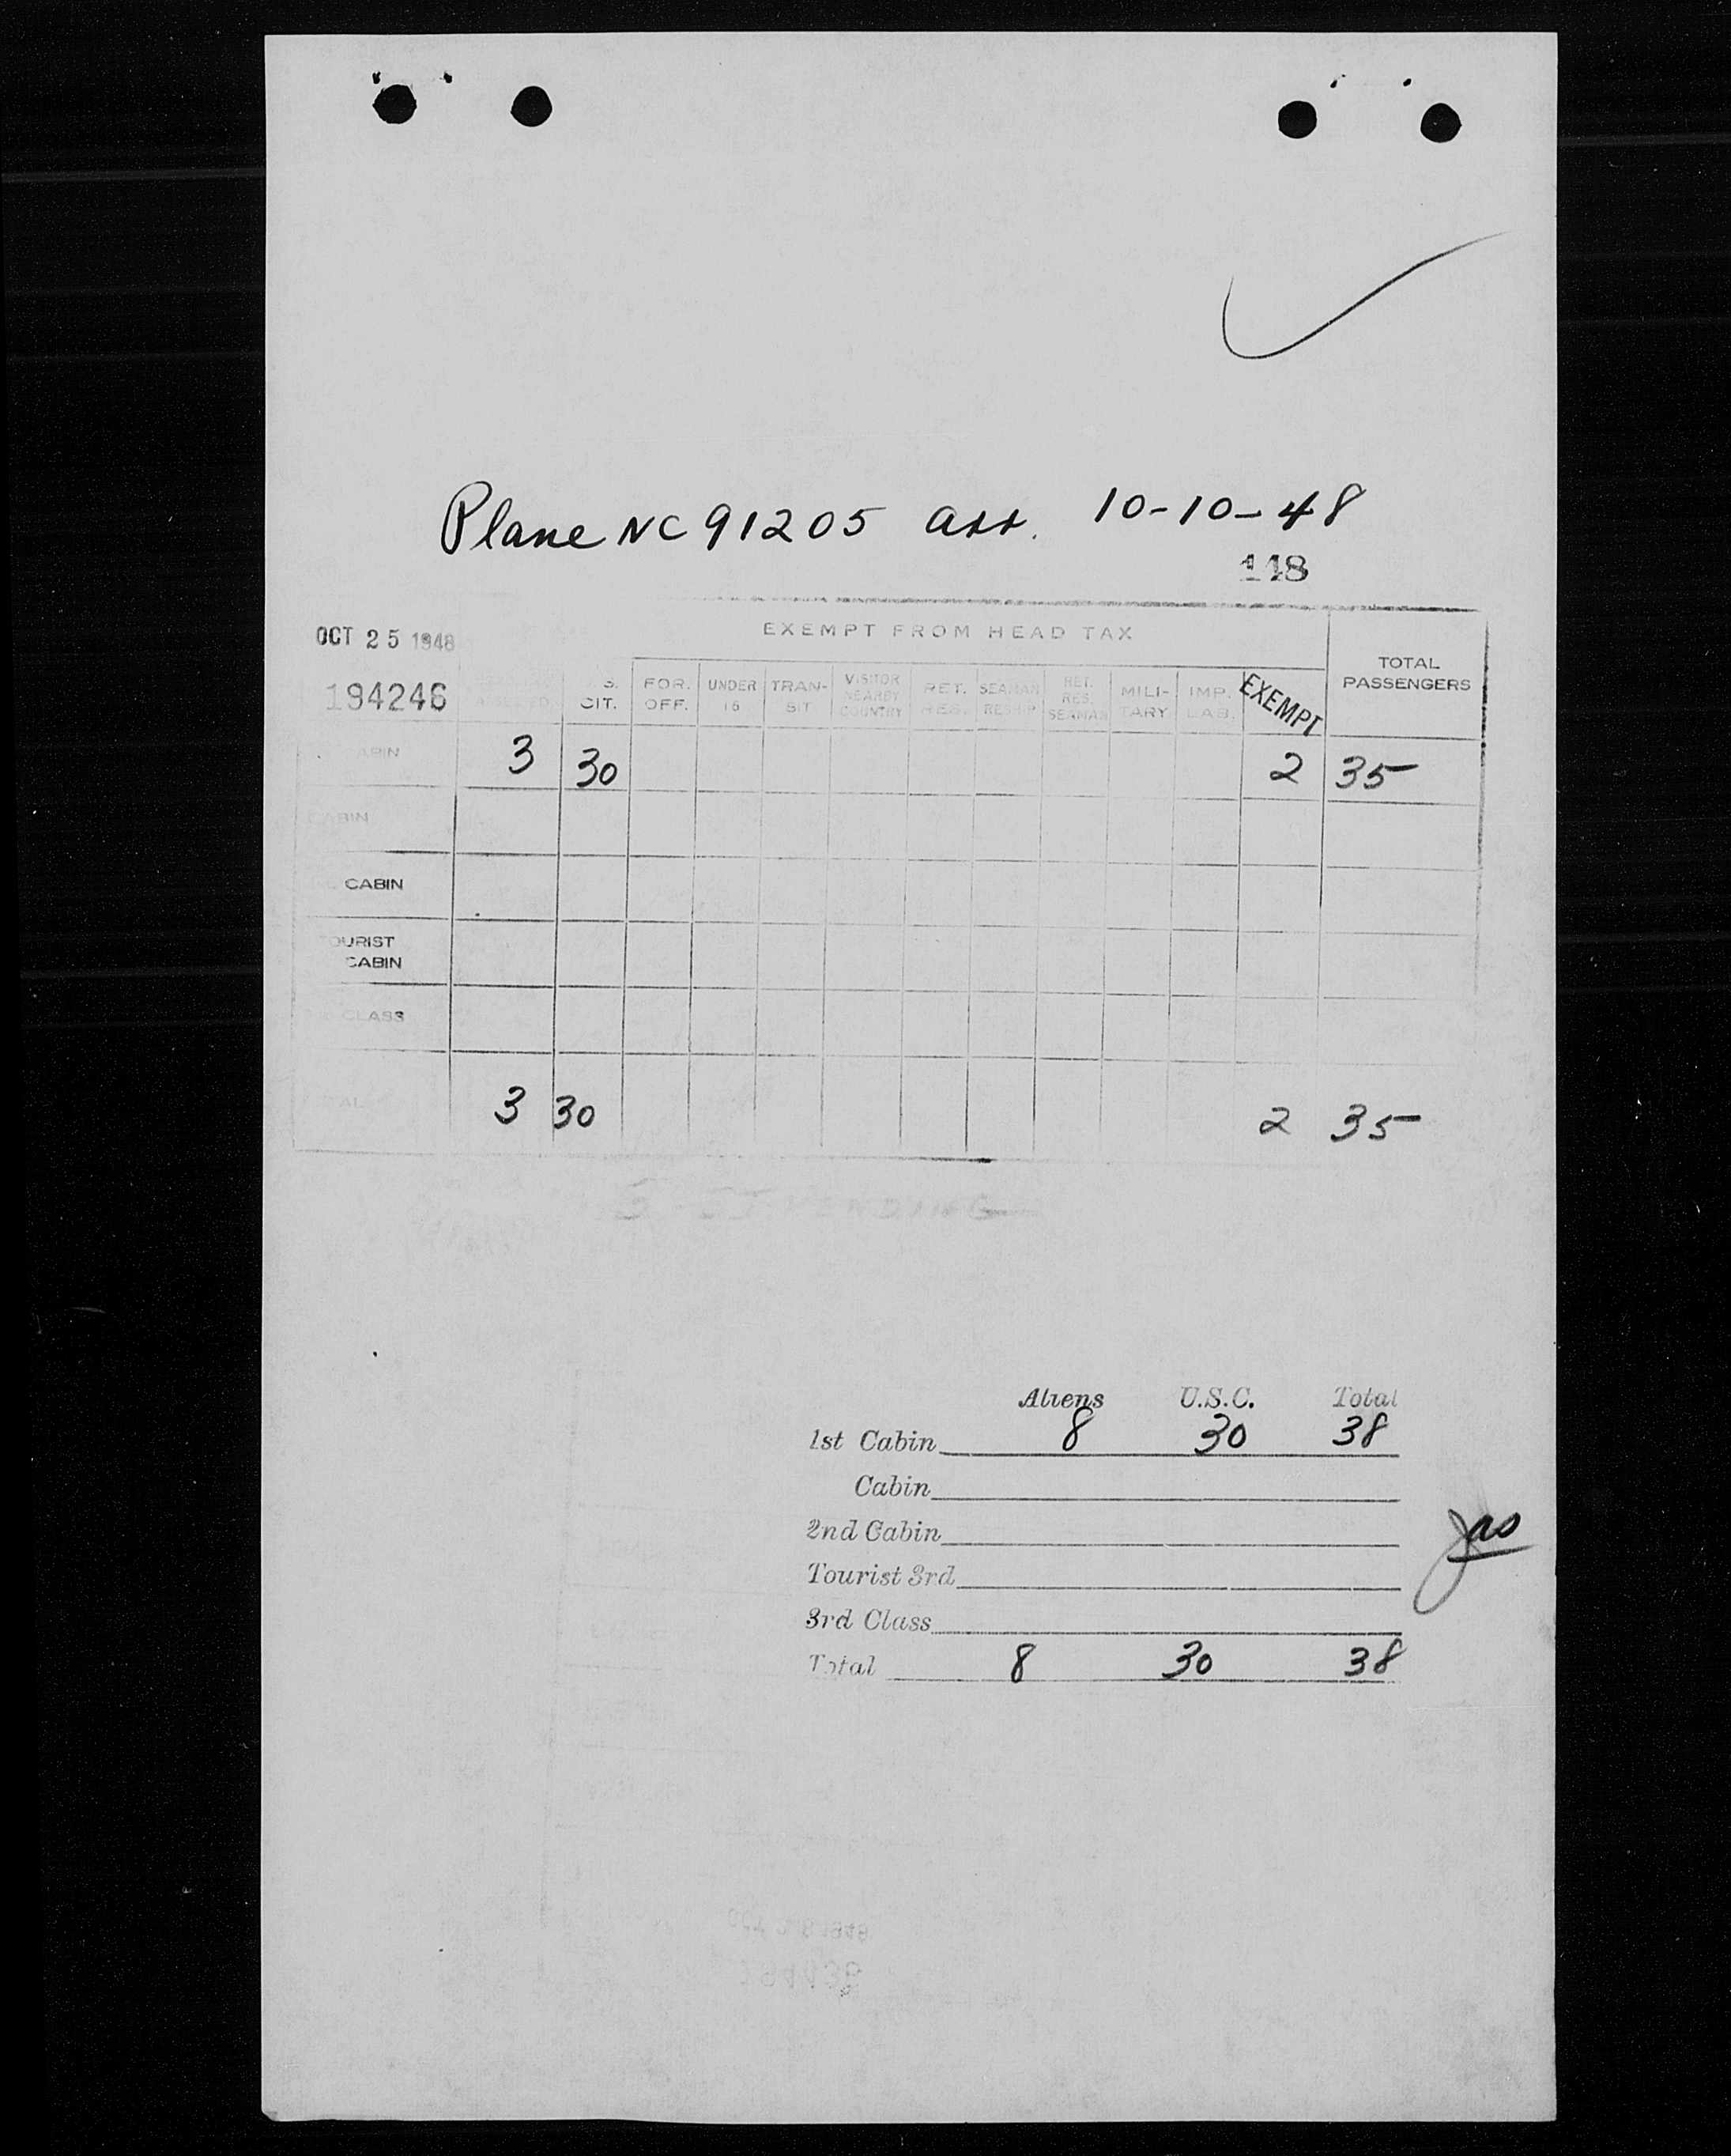 Plane NC 91205 arr. 10-10-48
148
OCT 25 1948
EXEMPT FROM HEAD TAX
TOTAL PASSENGERS
194246
S. CIT.
FOR. OFF.
UNDER 16
TRAN- SIT
VISITOR NEARBY COUNTRY
RET. RES.
SEAMAN RESHIP
RET. RES. SEAMAN
MILI- TARY
IMP. LAB.
EXEMPT
ABIN 3 30 2 35
ABIN
CABIN
OURIST
CABIN
CLASS
TAL 3 30 2 35
3 PENDING
Aliens U.S.C. Total
1st Cabin 8 30 38
Cabin
2nd Cabin
Tourist 3rd
3rd Class
Total 8 30 38